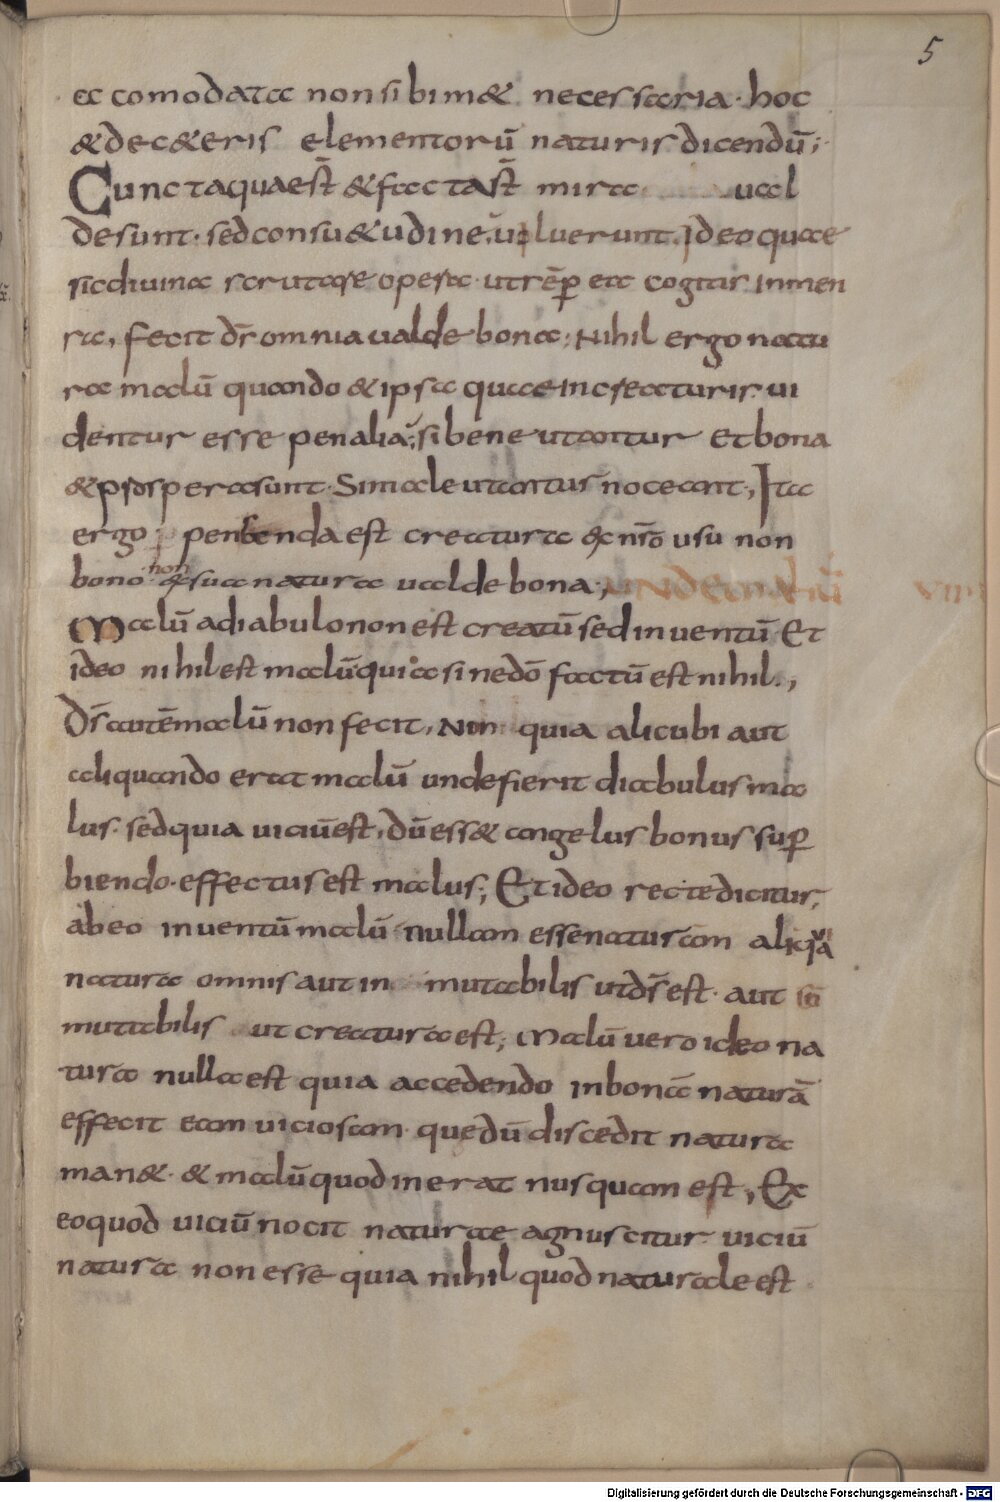 5
et comodata non sibimet necessaria. hoc
& de c&eris elementorū naturis dicendū;
Cuncta quae st̄ & facta st̄ mira ual
de sunt. sed consu&udine uoluerunt. Ideo quae
sic diuina scrutare opera. ut semp ea cogitis inmen
sa, fecit ds̄ omnia ualde bona; Nihil ergo natu
ra malū quando & ipsa quae in creaturis ui
dentur esse penalia; si bene utantur et bona
& prospera sunt. Si male utantur noceant, Ita
ergo penbenda est creatura ex nr̄o usu non
bono non ex sua natura ualde bona;
Malū a diabulo non est creatū sed inuentū Et
ideo nihil est malū quia sine dō factū est nihil.,
Ds̄ autē malū non fecit, Non quia alicubi aut
aliquando erat malū unde fierit diabulus ma
lus. sed quia uiciū est, dū ess& angelus bonus sup
biendo. effectus est malus; Et ideo recte dicitur,
ab eo inuentū malū nullam esse naturam alicuia
natura omnis aut in mutabilis ut ds̄ est. aut
mutabilis ut creatura est; Malū uero ideo na
tura nulla est quia accedendo in bonā naturā
effecit eam uiciosam. que dū discedit natura
man&. & malū quod inerat nusquam est, Ex
eo quod uiciū nocit naturae agnuscitur uiciū
natura non esse quia nihil quod naturale est
Digitalisierung gefördert durch die Deutsche Forschungsgemeinschaft - DFG